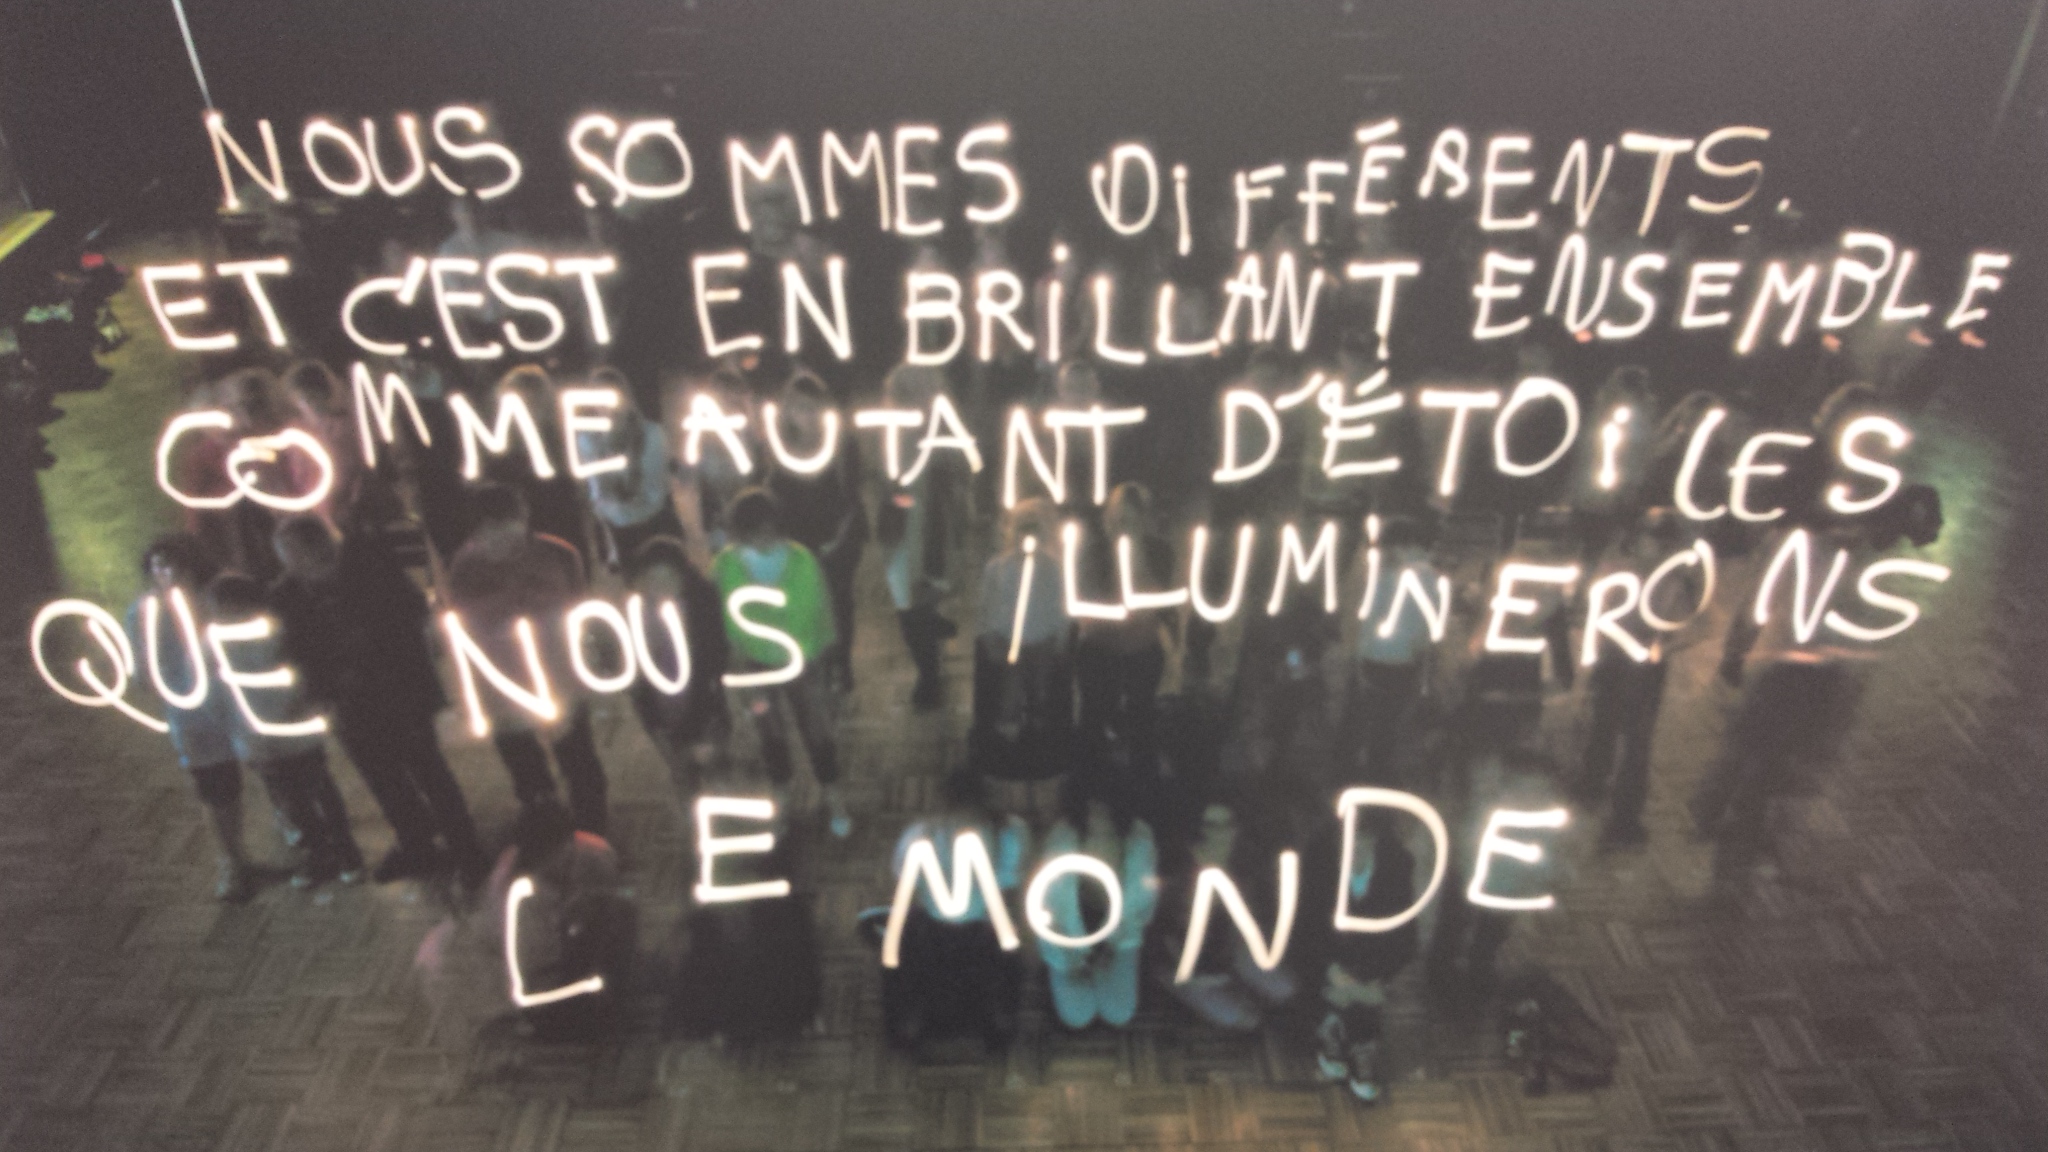 NOUS SOMMES DiFFÉRENTS.
ET C'EST EN BRiLLANT ENSEMBLE
COMME AUTANT D'ÉTOiLES
QUE NOUS iLLUMiNERONS
LE MONDE